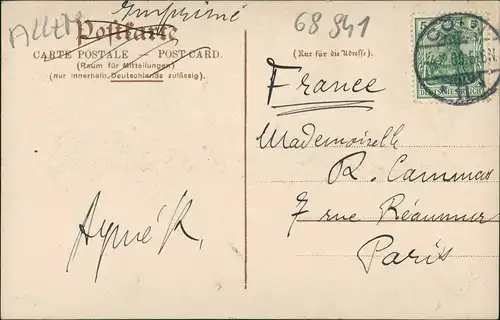 ALLEM
Imprimé
68 941
Postkarte
CARTE POSTALE — POST-CARD.
(Raum für Mitteilungen)
(nur innerhalb Deutschlands zulässig).
(Nur für die Adresse).
5
CÖLN
DEUTSCHES REICH
France
Mademoiselle
R. Cammas
7 rue Réaumur
Paris
Aymé R.